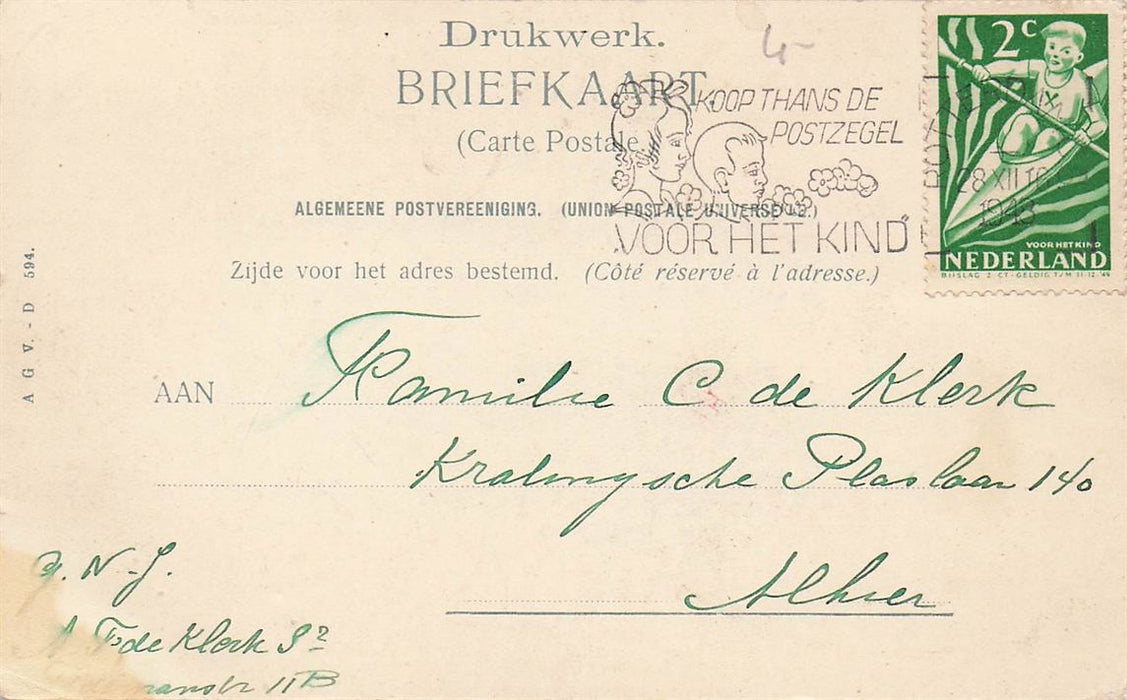 Drukwerk.
BRIEFKAART.
(Carte Postale.)
ALGEMEENE POSTVEREENIGING. (UNION POSTALE UNIVERSELLE.)
Zijde voor het adres bestemd. (Côté réservé à l'adresse.)
4-
KOOP THANS DE
POSTZEGEL
"VOOR HET KIND"
28 XII 16
2 c
VOOR HET KIND
NEDERLAND
BIJSLAG 2 CT - GELDIG T/M 31-12-'49
A G V. - D 594.
AAN Familie C de Klerk
Kralingsche Plaslaan 140
Alhier
N. J.
de Klerk Sr
11B